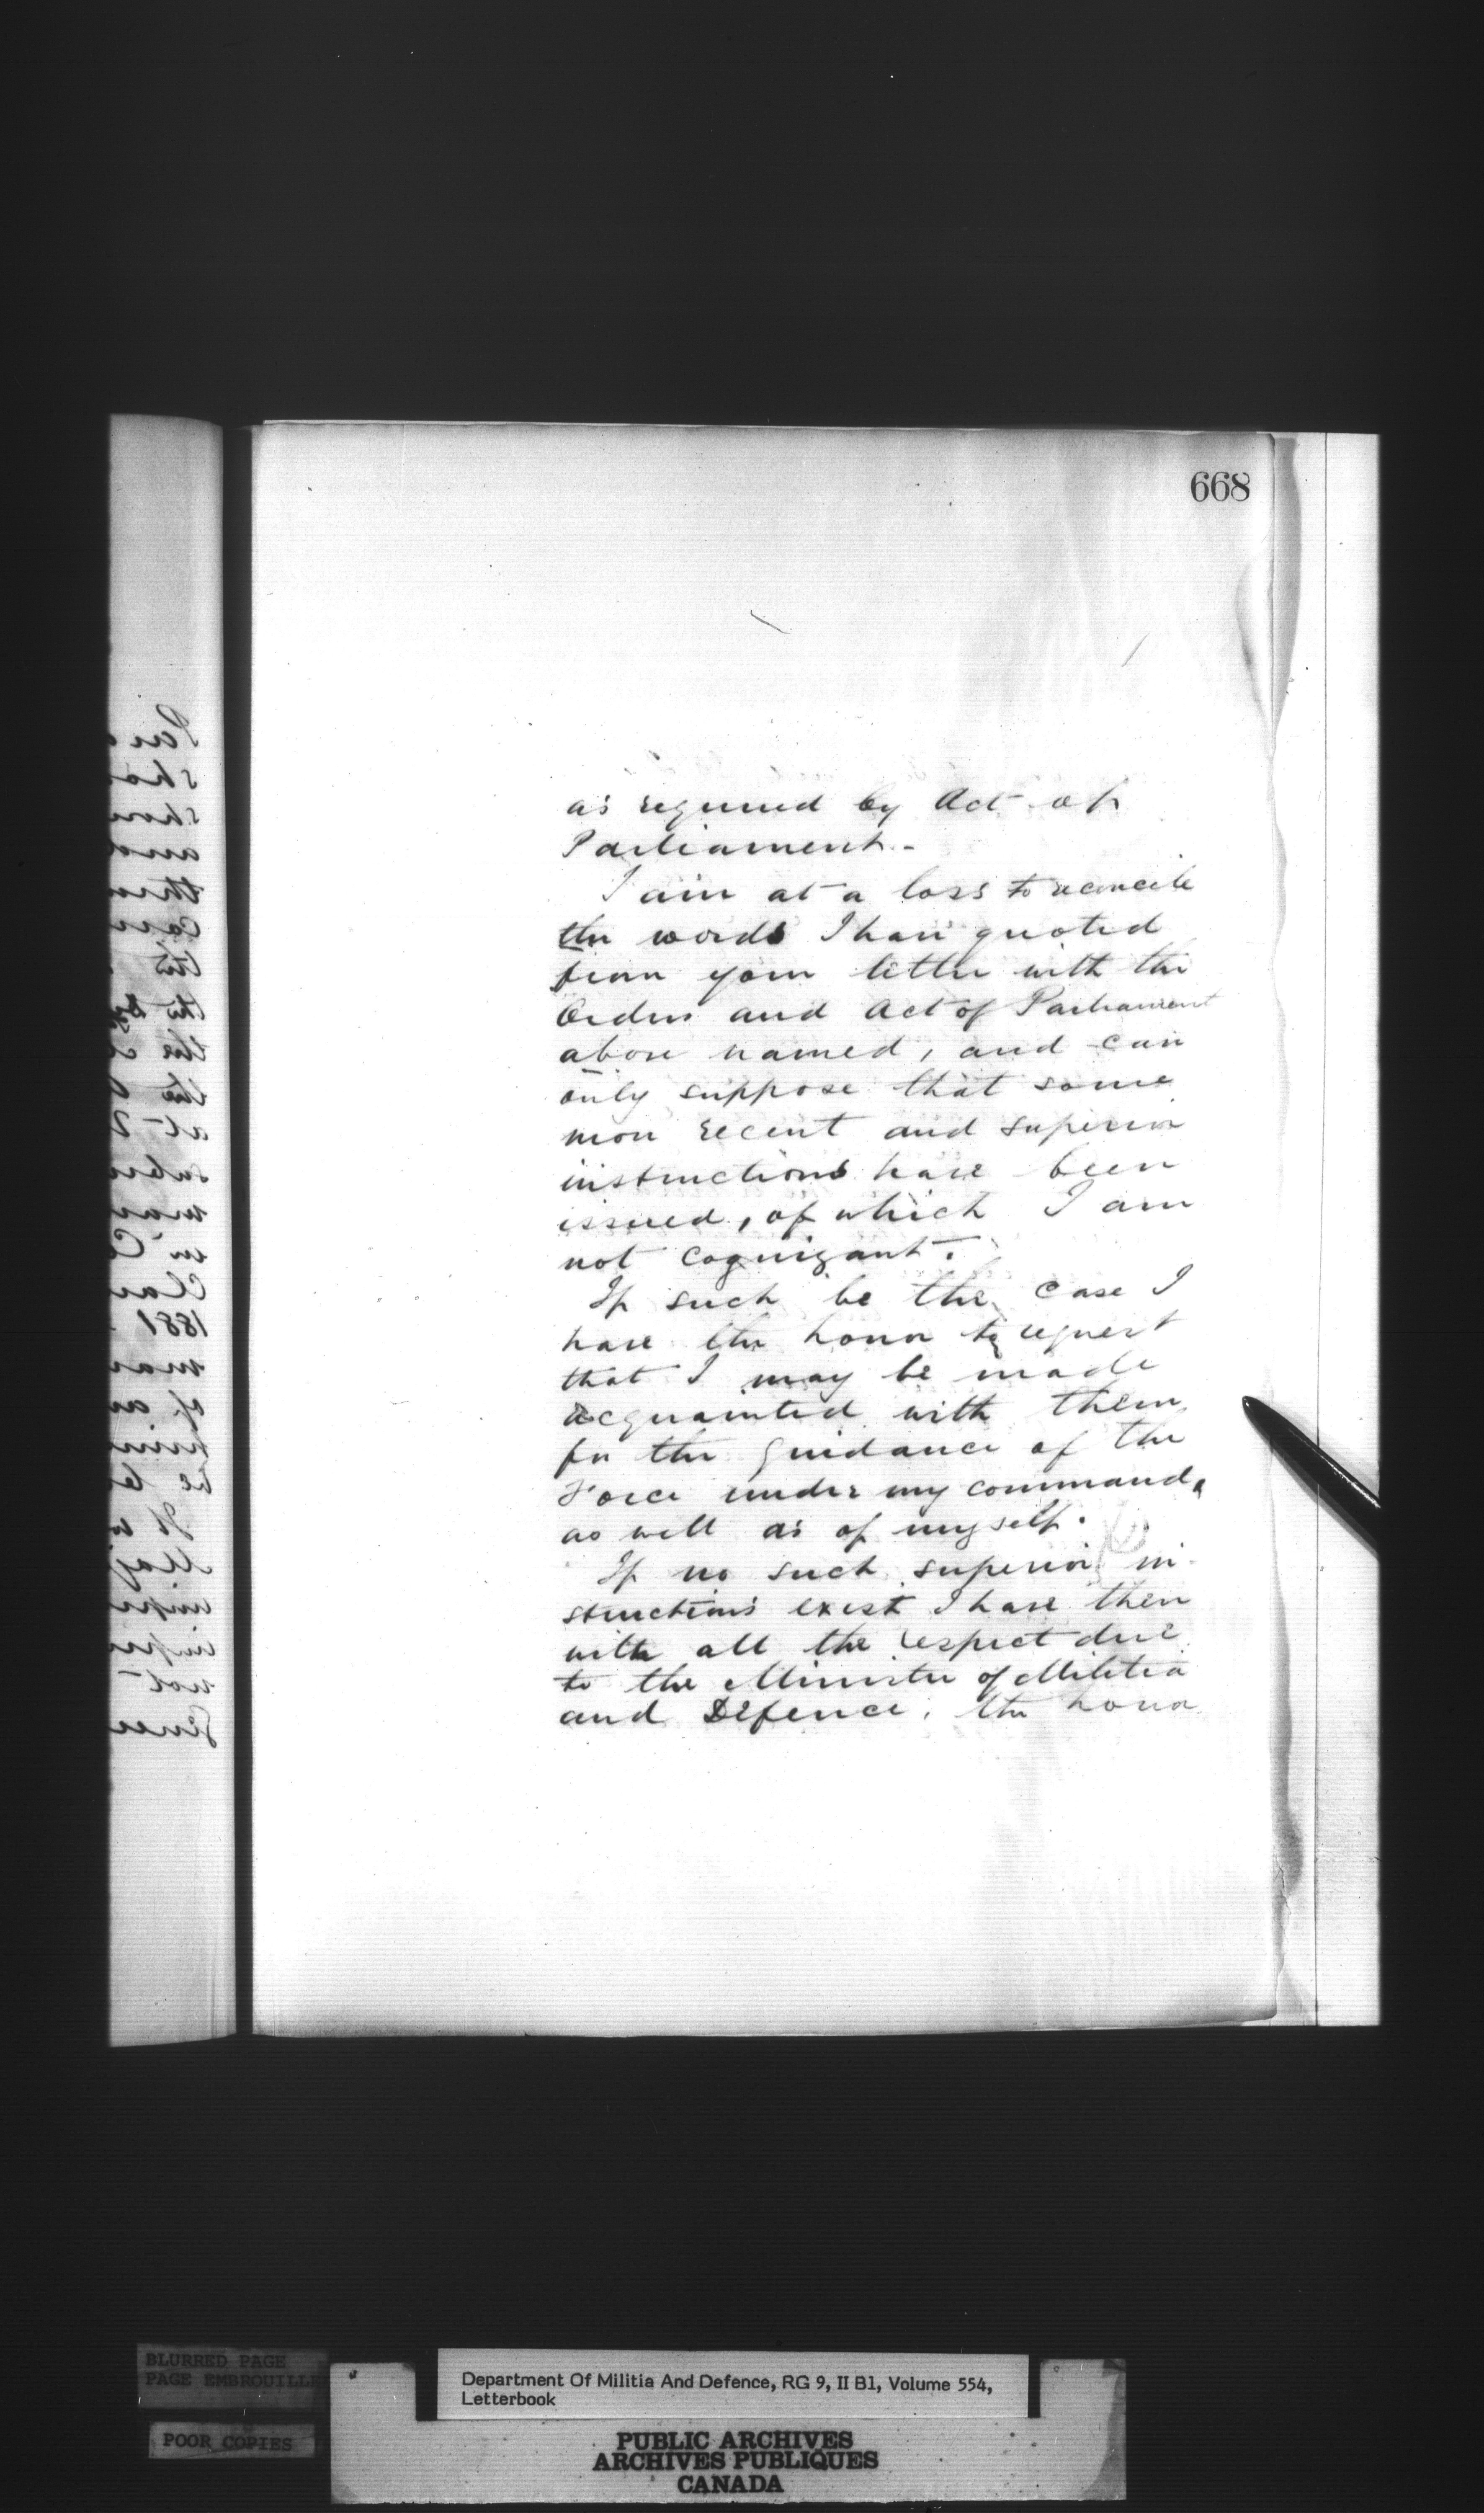 668
as required by Act of
Parliament.-
I am at a loss to reconcile
the words I have quoted
from your letter with the
Orders and Act of Parliament
above named, and can
only suppose that some
more recent and superior
instructions have been
issued, of which I am
not cognizant.
If such be the case I
have the honor to request
that I may be made
acquainted with them
for the guidance of the
Force under my command,
as well as of myself.
If no such superior in-
structions exist I have then
with all the respect due
to the Minister of Militia
and Defence, the honor
1881
BLURRED PAGE
PAGE EMBROUILLE
POOR COPIES
Department Of Militia And Defence, RG 9, II B1, Volume 554,
Letterbook
PUBLIC ARCHIVES
ARCHIVES PUBLIQUES
CANADA